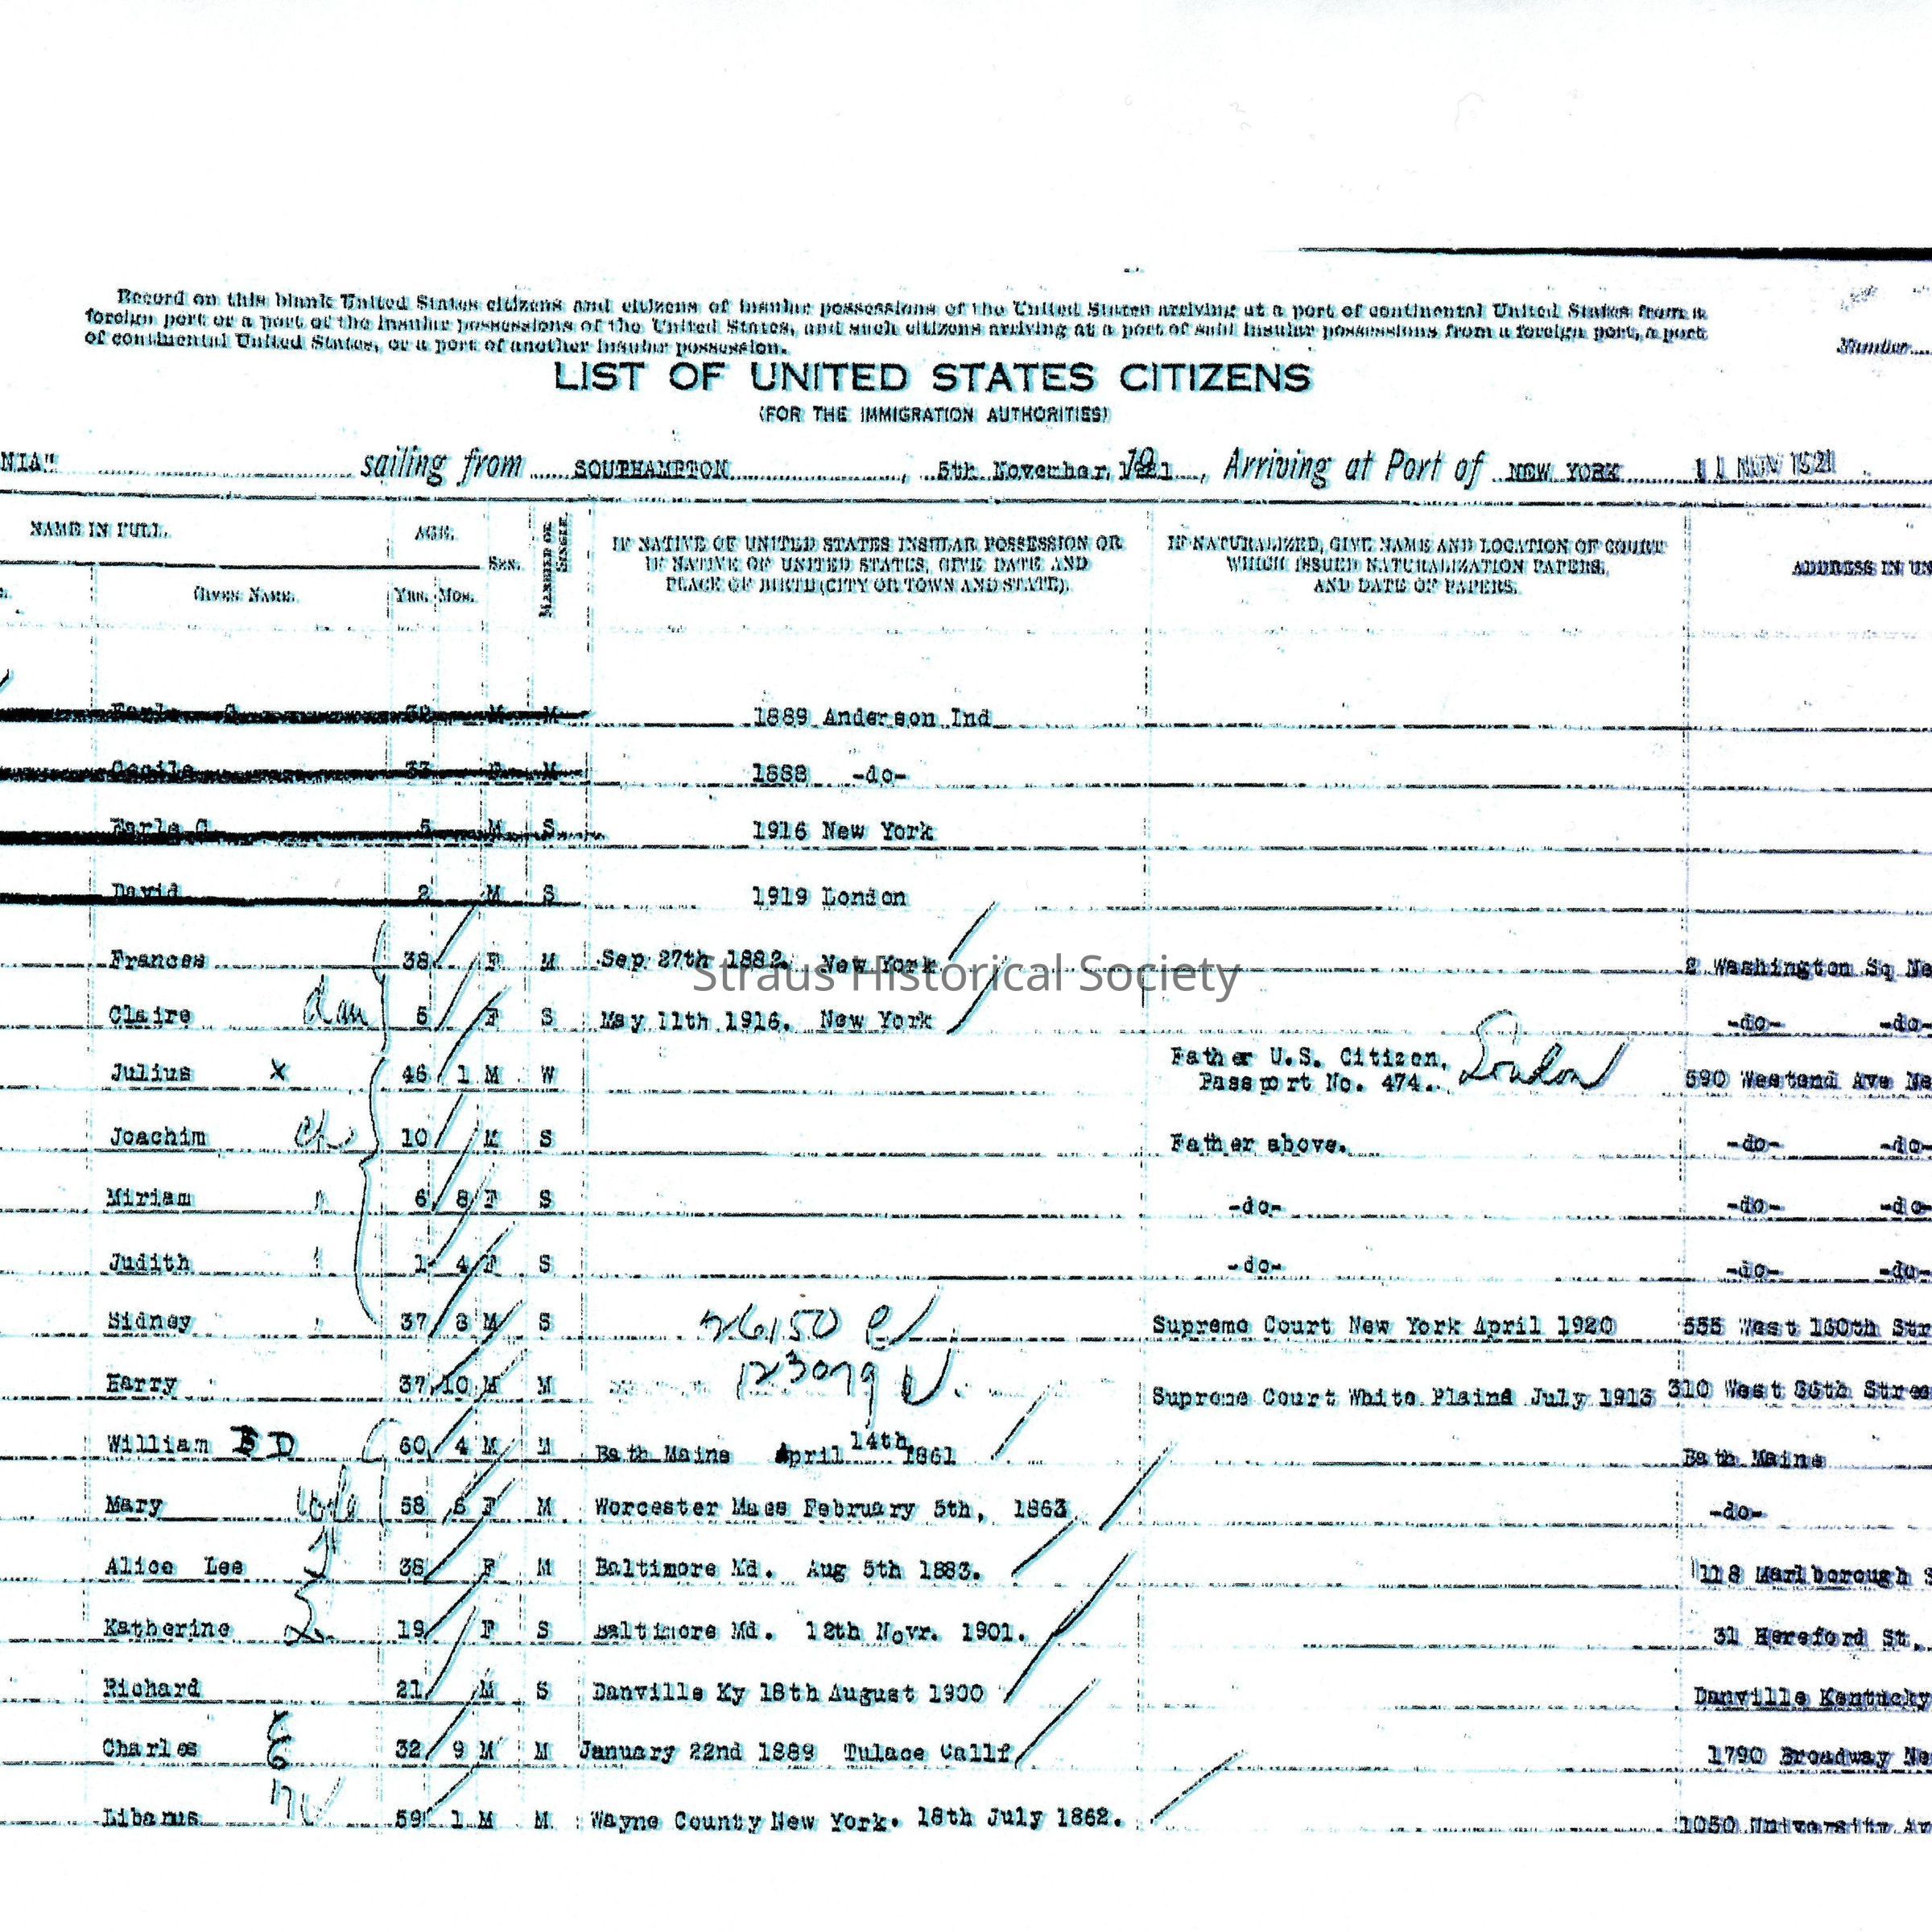 Record on this blank United States citizens and citizens of insular possessions of the United States arriving at a port of continental United States from a
foreign port or a port of the insular possessions of the United States, and such citizens arriving at a port of said insular possessions from a foreign port, a port
of continental United States, or a port of another insular possession.
Number
LIST OF UNITED STATES CITIZENS
(FOR THE IMMIGRATION AUTHORITIES)
NIA" sailing from SOUTHAMPTON, 5th November, 1921, Arriving at Port of NEW YORK 11 NOV 1921
NAME IN FULL. AGE. SEX. MARRIED OR SINGLE. IF NATIVE OF UNITED STATES INSULAR POSSESSION OR IF NATURALIZED, GIVE NAME AND LOCATION OF COURT
IF NATIVE OF UNITED STATES, GIVE DATE AND WHICH ISSUED NATURALIZATION PAPERS, ADDRESS IN UN
GIVEN NAME. YRS. MOS. PLACE OF BIRTH (CITY OR TOWN AND STATE). AND DATE OF PAPERS.
Earle G 32 M M 1889 Anderson Ind
Cecile 33 F M 1888 -do-
Earle G 5 M S 1916 New York
David 2 M S 1919 London
Frances 38 F M Sep 27th 1882. New York 2 Washington Sq Ne
Straus Historical Society
Claire 5 F S May 11th 1916. New York -do- -do-
Julius X 46 1 M W Father U.S. Citizen, London 590 Westend Ave Ne
Passport No. 474.
Joachim ch 10 M S Father above. -do- -do-
Miriam 6 8 F S -do- -do- -do-
Judith 1 4 F S -do- -do- -do-
Sidney 37 8 M S 26150 Supreme Court New York April 1920 555 West 160th Str
Harry 37 10 M M 123079 Supreme Court White Plains July 1913 310 West 86th Stree
William B D 60 4 M M Bath Maine April 14th 1861 Bath Maine
Mary wife 58 6 F M Worcester Mass February 5th, 1863 -do-
Alice Lee 38 F M Baltimore Md. Aug 5th 1883. 118 Marlborough S
Katherine 19 F S Baltimore Md. 12th Novr. 1901. 31 Hereford St.
Richard 21 M S Danville Ky 18th August 1900 Danville Kentucky
Charles 32 9 M M January 22nd 1889 Tulace Callf 1790 Broadway Ne
Libanus 59 1 M M Wayne County New York. 18th July 1862. 1050 University Av